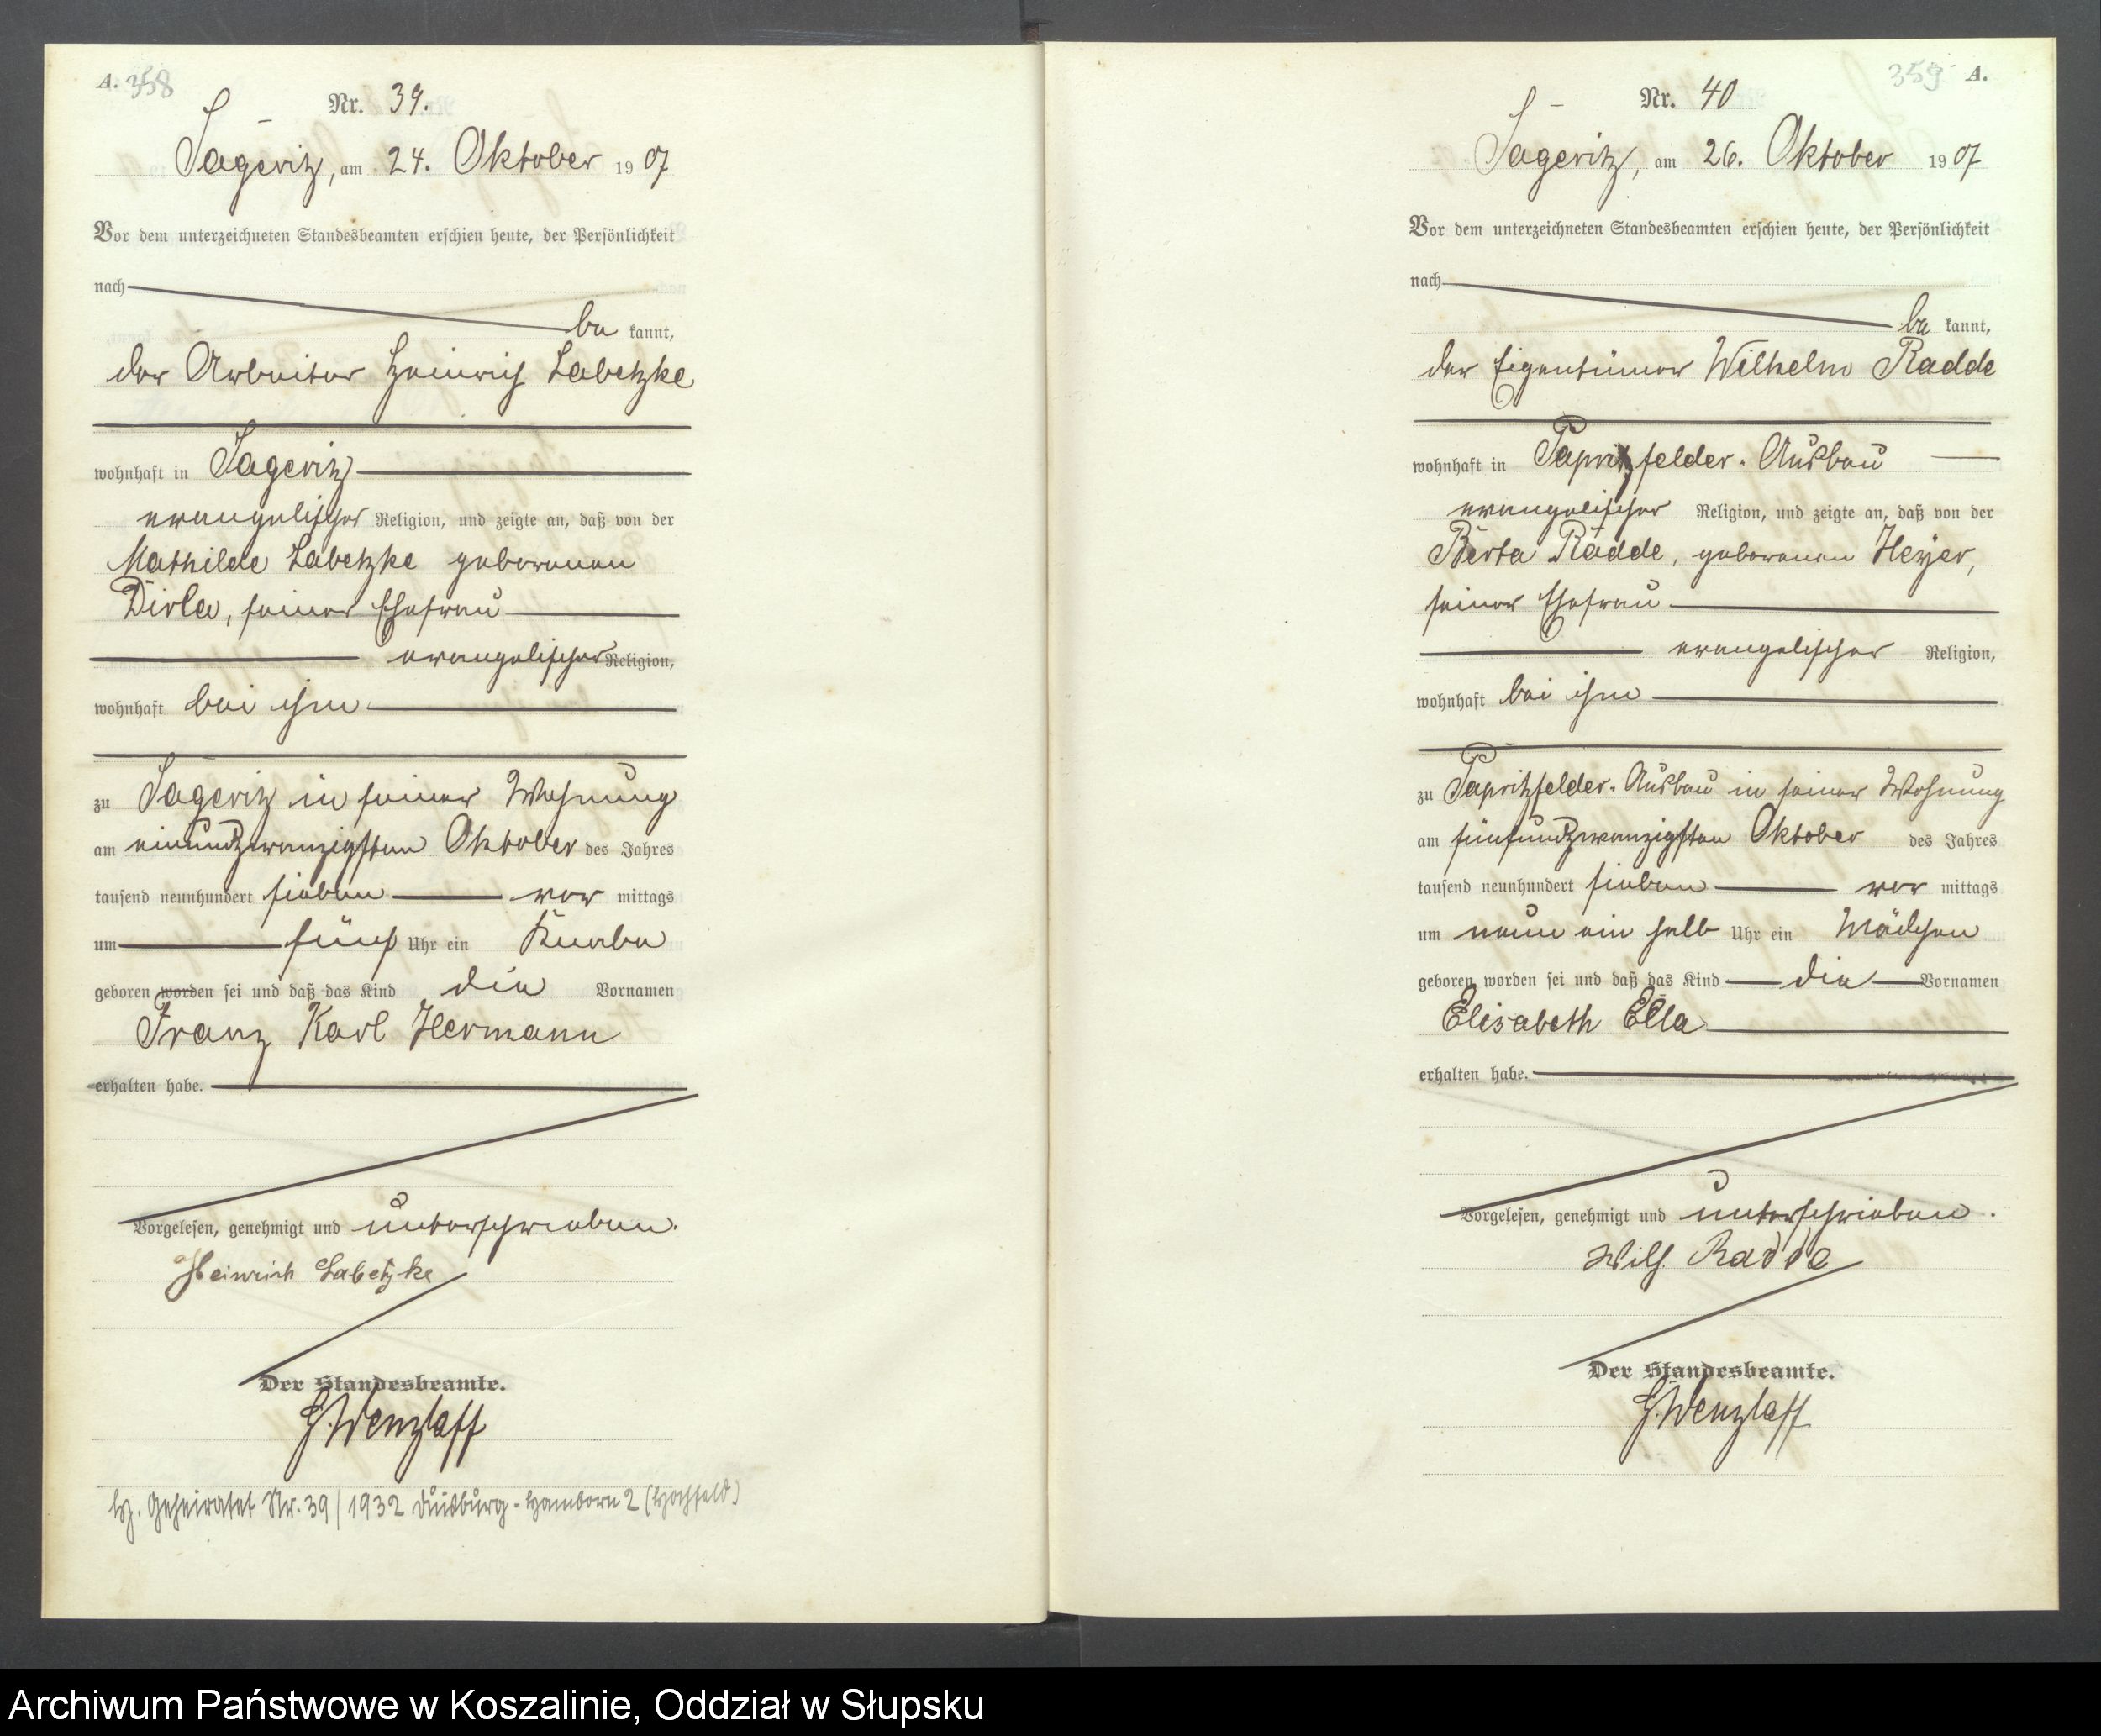 A. 358
Nr. 39.
Sageritz, am 24. Oktober 1907
Vor dem unterzeichneten Standesbeamten erschien heute, der Persönlichkeit
nach
be kannt,
der Arbeiter Heinrich Labetzke
wohnhaft in Sageritz
evangelischer Religion, und zeigte an, daß von der
Mathilde Labetzke geborenen
Dirla, seiner Ehefrau
evangelischer Religion,
wohnhaft bei ihm
zu Sageritz in seiner Wohnung
am einundzwanzigsten Oktober des Jahres
tausend neunhundert sieben vor mittags
um fünf Uhr ein Knabe
geboren worden sei und daß das Kind die Vornamen
Franz Karl Hermann
erhalten habe.
Vorgelesen, genehmigt und unterschrieben.
Heinrich Labetzke
Der Standesbeamte.
H. Wenzlaff
Hz. Geheiratet Nr. 39/1932 Duisburg-Hamborn 2 (Hochfeld)
359 A.
Nr. 40
Sageritz, am 26. Oktober 1907
Vor dem unterzeichneten Standesbeamten erschien heute, der Persönlichkeit
nach
be kannt,
der Eigentümer Wilhelm Radde
wohnhaft in Papritzfelder-Ausbau
evangelischer Religion, und zeigte an, daß von der
Berta Radde, geborenen Heyer,
seiner Ehefrau
evangelischer Religion,
wohnhaft bei ihm
zu Papritzfelder-Ausbau in seiner Wohnung
am fünfundzwanzigsten Oktober des Jahres
tausend neunhundert sieben vor mittags
um neun ein halb Uhr ein Mädchen
geboren worden sei und daß das Kind die Vornamen
Elisabeth Ella
erhalten habe.
Vorgelesen, genehmigt und unterschrieben.
Wilh. Radde
Der Standesbeamte.
H. Wenzlaff
Archiwum Państwowe w Koszalinie, Oddział w Słupsku